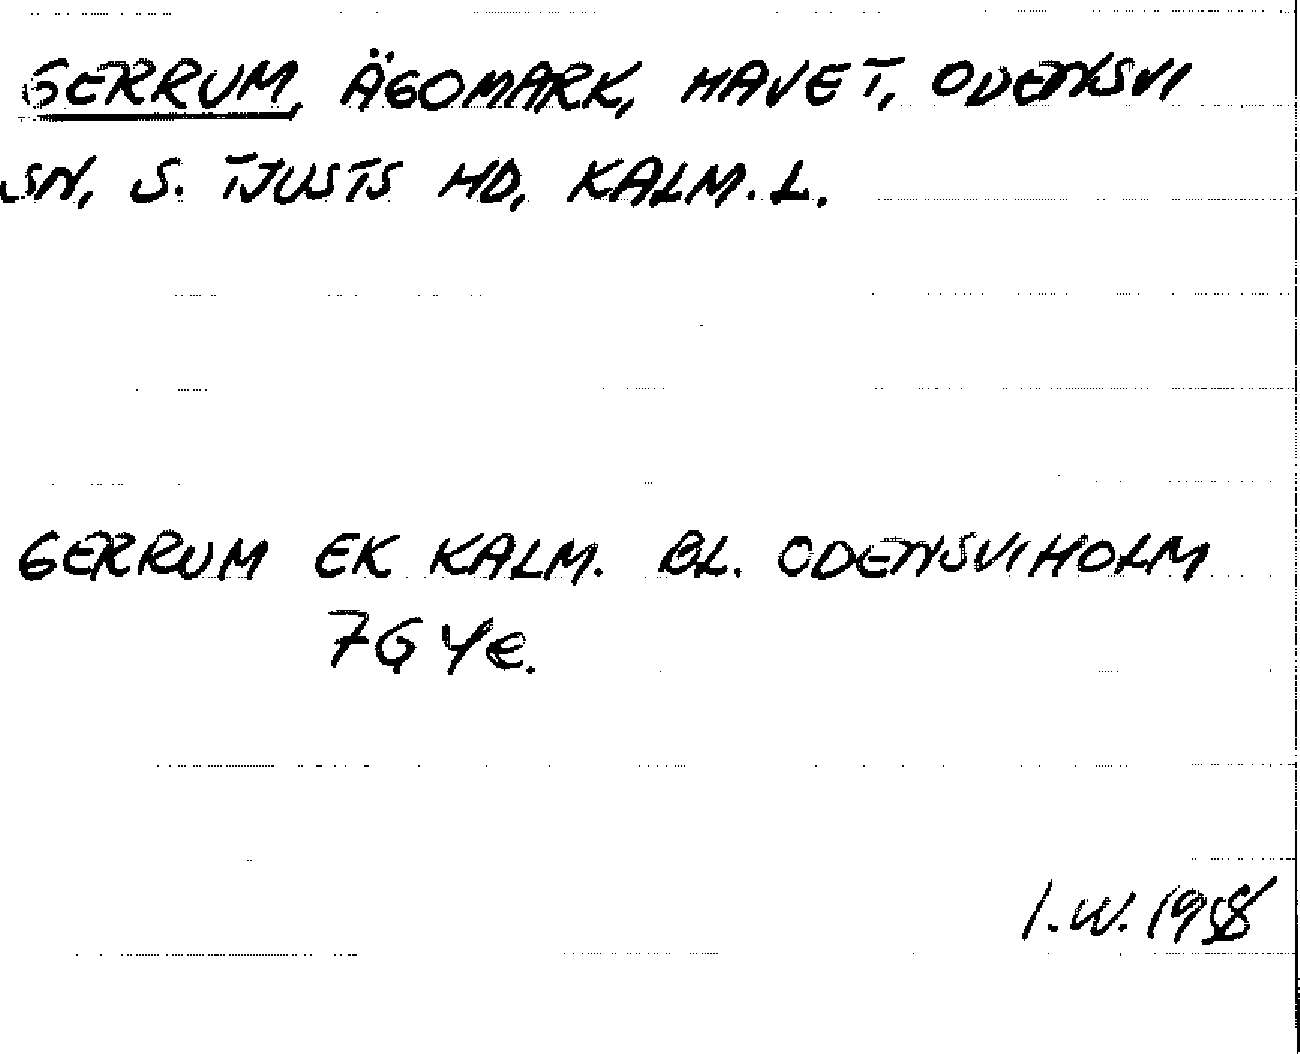 GERRUM, ÄGOMARK, HAVET, ODENSVI
SN, S. TJUSTS HD, KALM. L.
GERRUM EK KALM. BL. ODENSVIHOLM
7G 4e.
I.W.